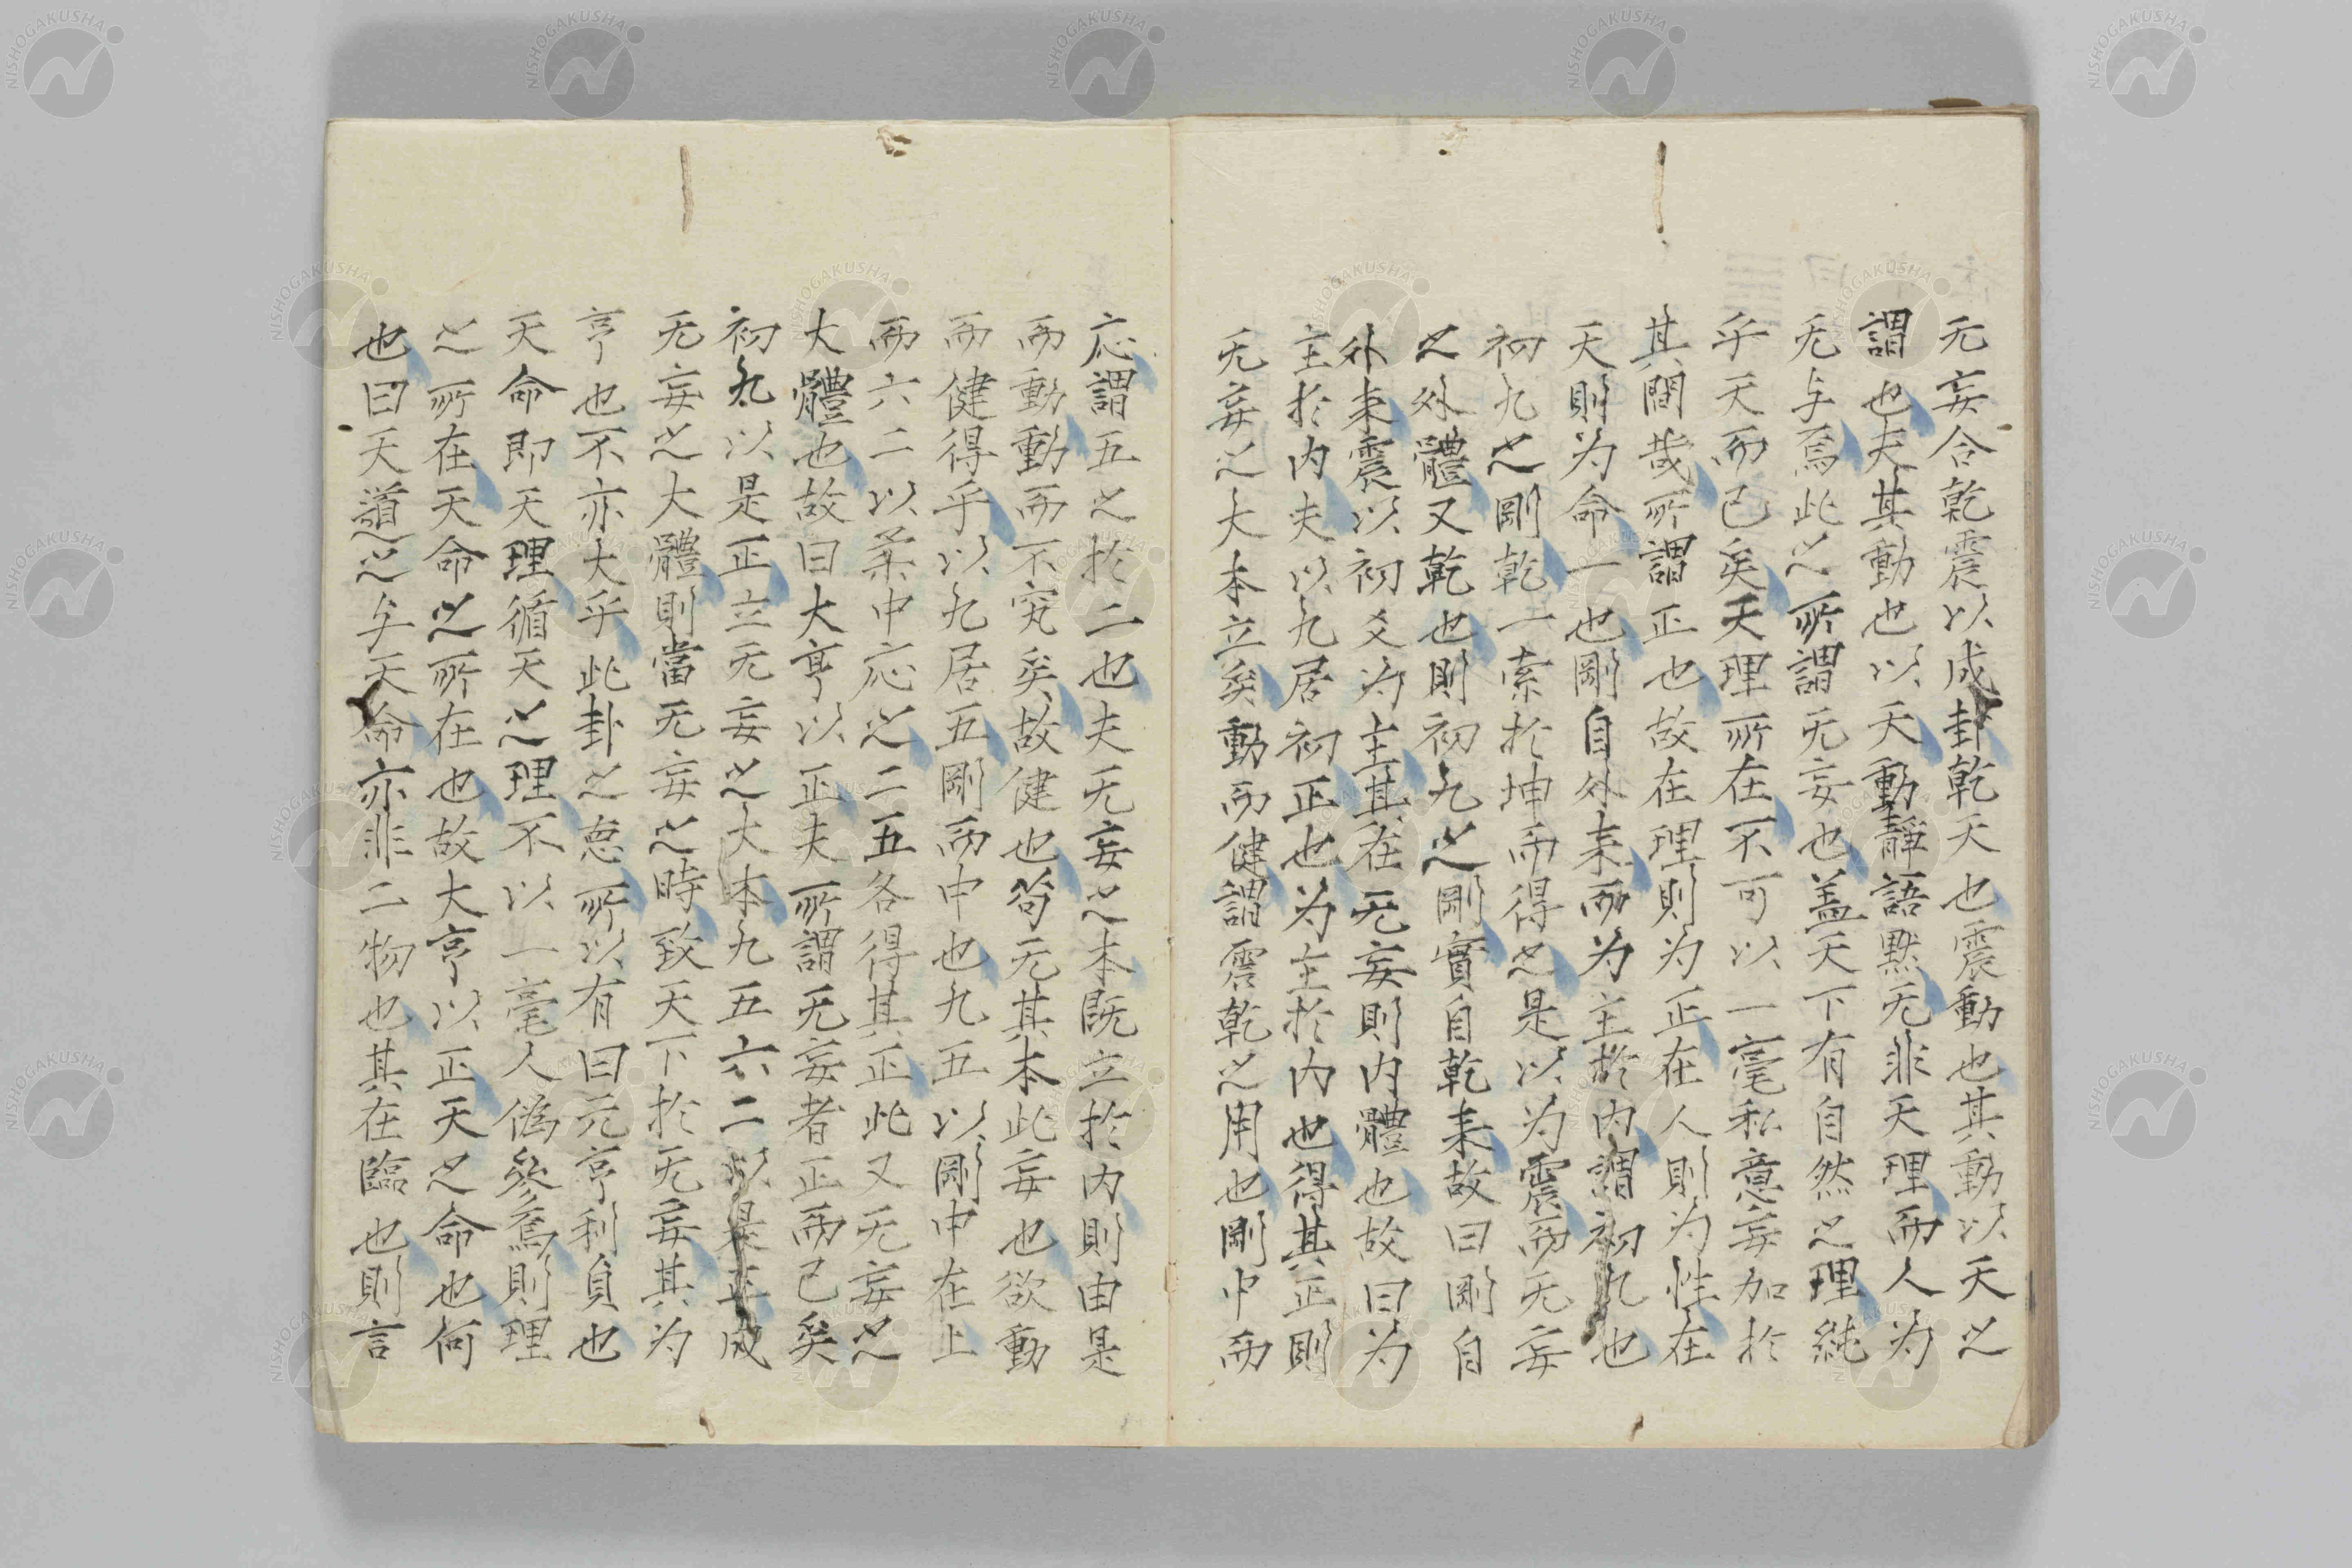 无妄合乾震以成卦乾天也震動也其動以天之
謂也夫其動也以天動靜語默无非天理而人为
无与焉此之所謂无妄也盖天下有自然之理純
乎天而已矣天理所在不可以一毫私意妄加於
其間哉所謂正也故在理則为正在人則为性在
天則为命一也剛自外来而为主於内謂初九也
初九之剛乾一索於坤而得之是以为震而无妄
之外體又乾也則初九之剛實自乾来故曰剛自
外来震以初爻为主其在无妄則内體也故曰为
主於内夫以九居初正也为主於内也得其正則
无妄之大本立矣動而健謂震乾之用也剛中而
応謂五之於二也夫无妄之本既立於内則由是
而動動而不究矣故健也苟无其本此妄也欲動
而健得乎以九居五剛而中也九五以剛中在上
而六二以柔中応之二五各得其正此又无妄之
大體也故曰大亨以正夫所謂无妄者正而已矣
初九以是正立无妄之大本九五六二以是正成
无妄之大體則當无妄之時致天下於无妄其为
亨也不亦大乎此卦之㤙所以有曰元亨利貞也
天命即天理循天之理不以一毫人偽參焉則理
之所在天命之所在也故大亨以正天之命也何
也曰天道之与天命亦非二物也其在臨也則言
NISHOGAKUSHA